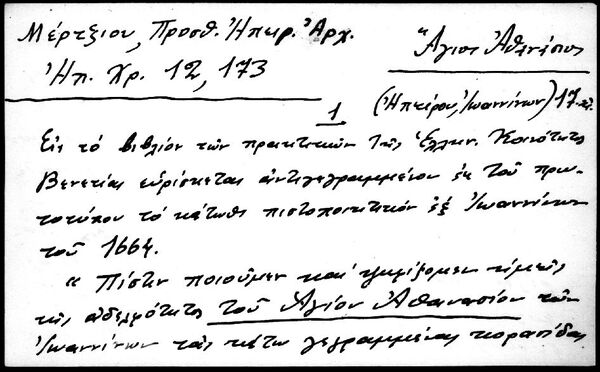 Μέρτζιου, Προσθ. Ἠπειρ. Ἀρχ.
Ἠπ. Χρ. 12, 173
Ἅγιος Ἀθανάσιος
(Ἠπείρου, Ἰωαννίνων) 17
1
Εἰς τό βιβλίον τῶν πρακτικῶν τῆς Ἑλλην. Κοινότητος
Βενετίας εὑρίσκεται ἀντιγεγραμμένον ἐκ τοῦ πρω-
τοτύπου τό κάτωθι πιστοποιητικόν ἐξ Ἰωαννίνων
τοῦ 1664.
" Πίστιν ποιοῦμεν καί ἡμεῖς
τῆς ἀδελφότητος τοῦ Ἁγίου Ἀθανασίου τῶν
Ἰωαννίνων τάς κάτω γεγραμμένας κορασίδας